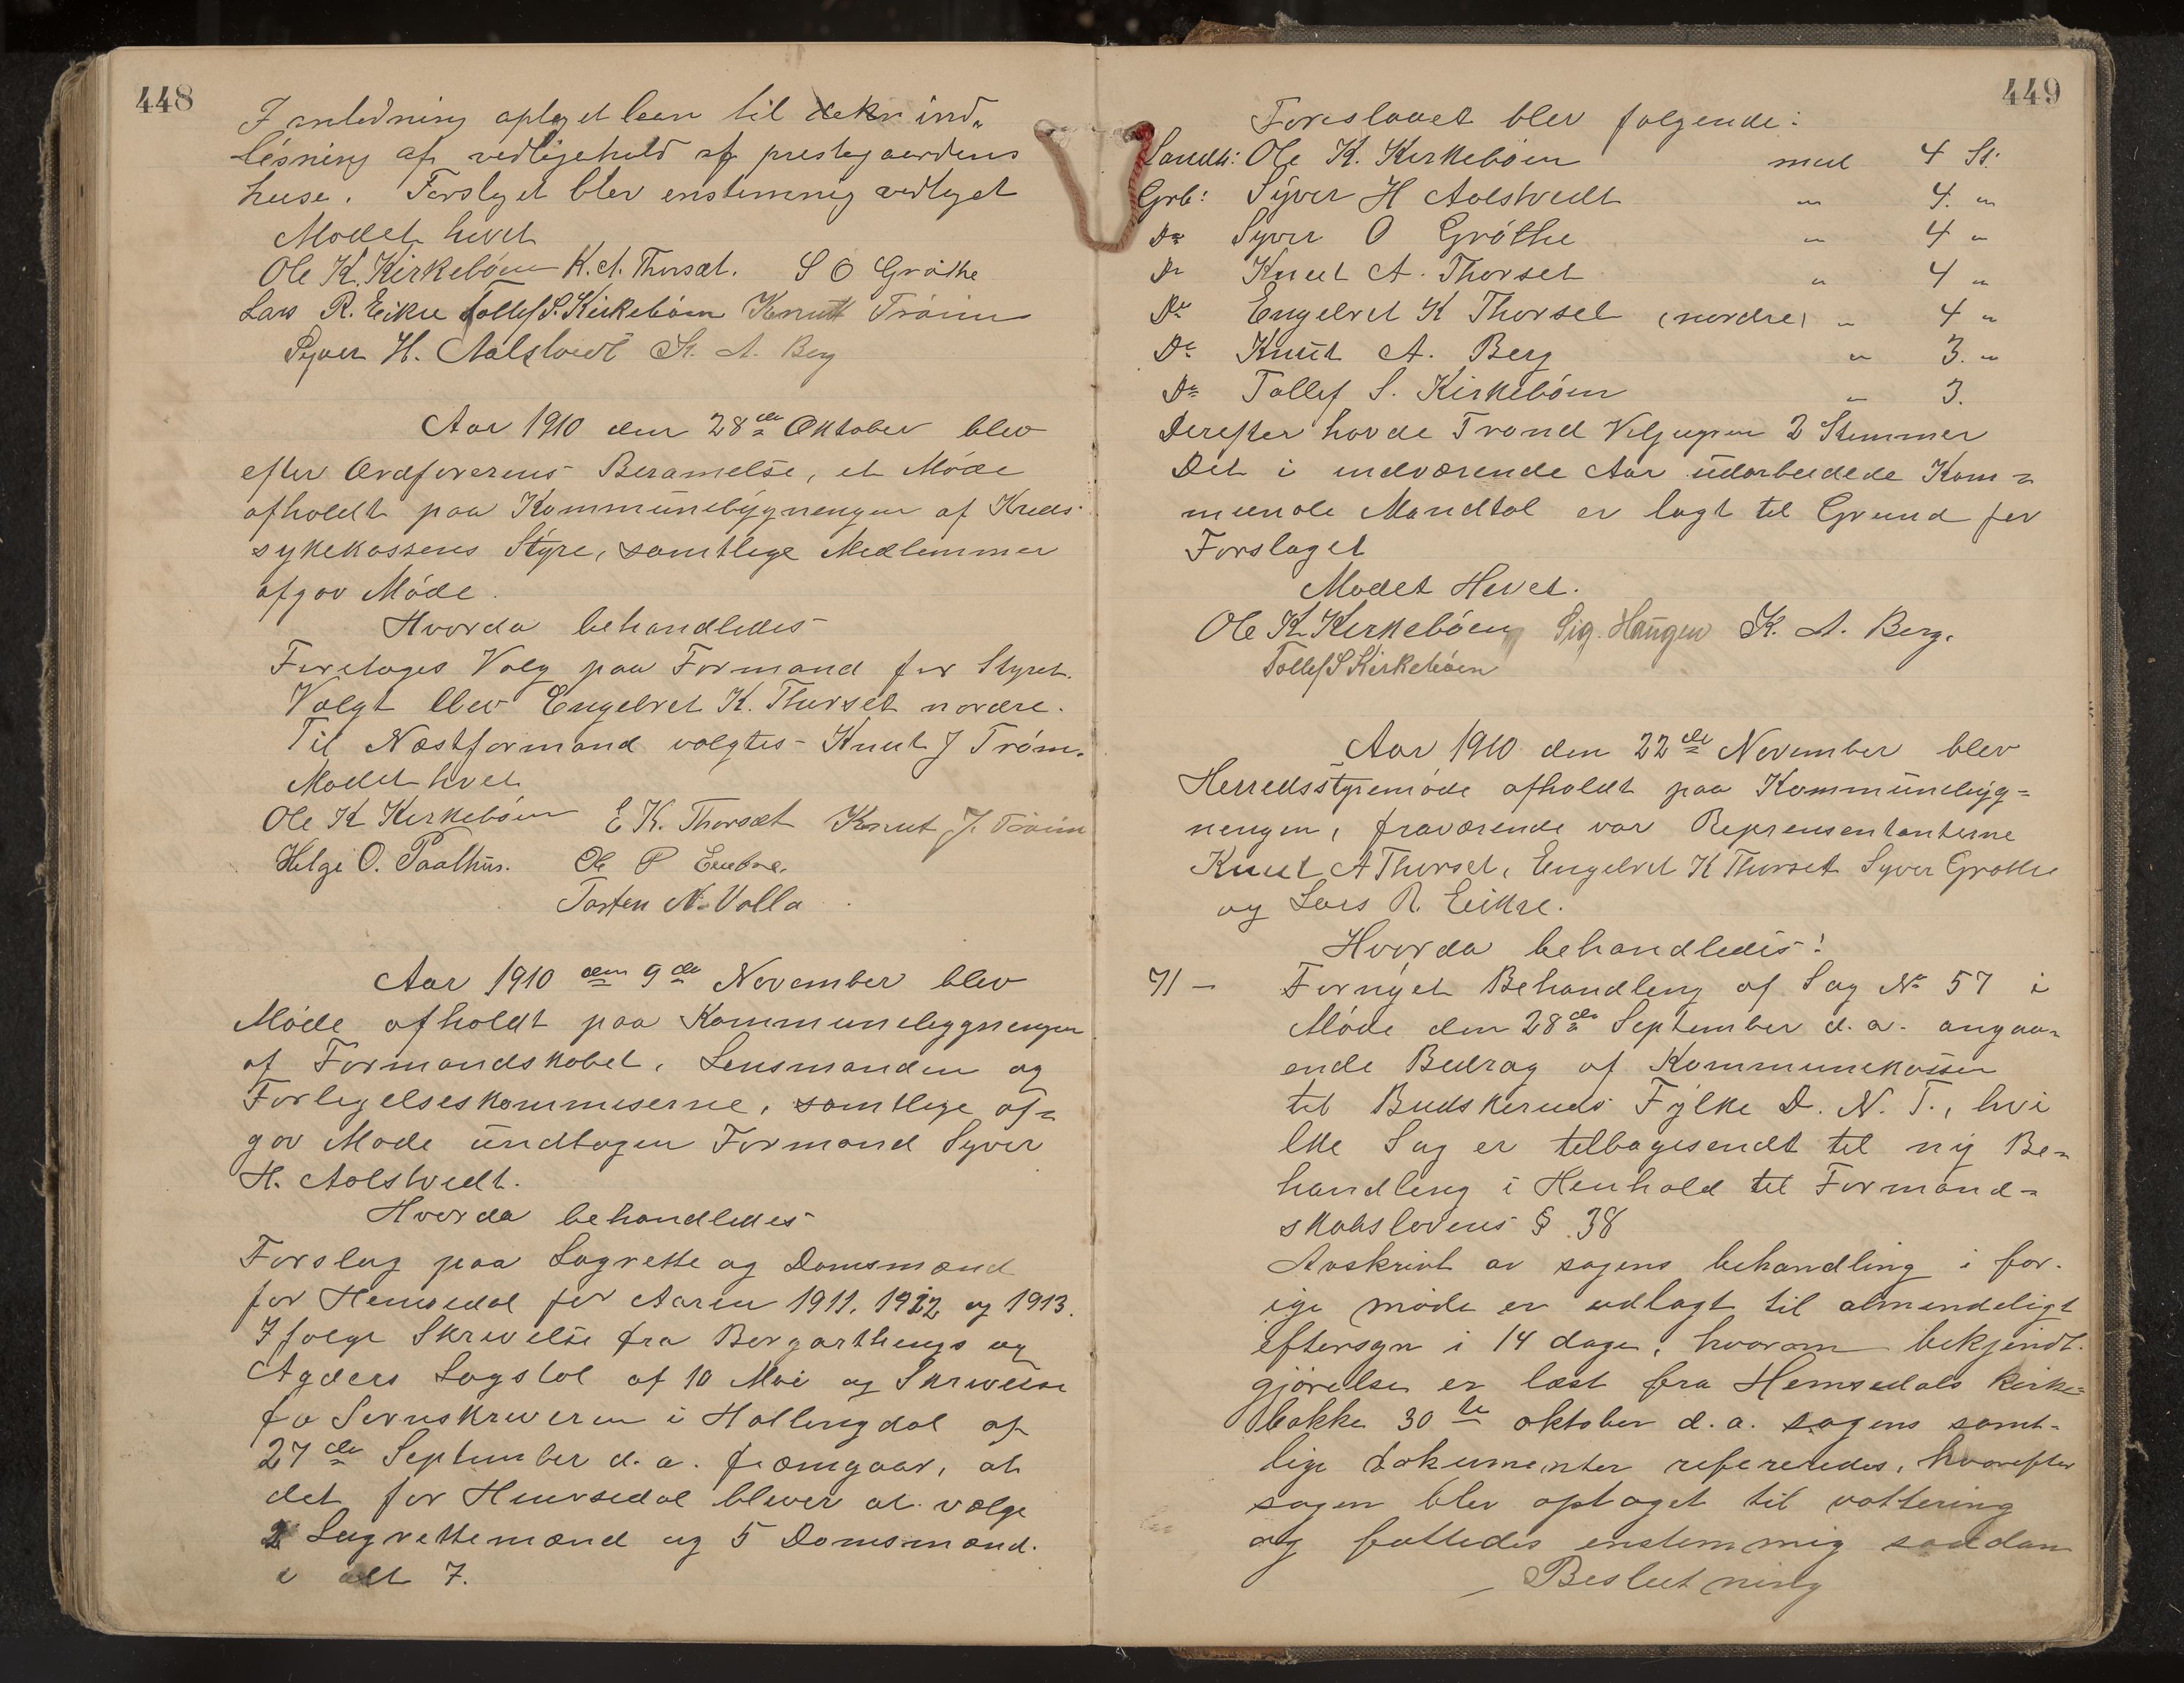 448
I anledning optaget laan til dekn ind„
løsning af vedligehold af prestegaardens
huse. Forslaget blev enstemmig vedtaget
Mødet hevet
Ole K. Kirkebøen K. A. Thorset. S O Grøthe
Lars R. Eikre Tollef S. Kirkebøen Knut Trøim
Syver H. Aalstvedt K. A. Berg
Aar 1910 den 28de Oktober blev
efter Ordførerens Beramelse, et Møde
afholdt paa Kommunebygningen af Kreds-
sykekassens Styre, samtlige Medlemmer
afgav Møde.
Hvorda behandledes
Foretages Valg paa Formand for Styret.
Valgt blev Engebret K. Thorset nordre.
Til Næstformand valgtes - Knut J Trøim.
Mødet hvet
Ole K Kirkebøen E K. Thorset Knut J. Trøim
Helge O. Paalhus. Ole P Embre.
Torsten N. Ulla
Aar 1910 den 9de November blev
Møde afholdt paa Kommunebygningen
af Formandskabet, Lensmanden og
Forligelseskommiserne, samtlige af=
gav Møde undtagen Formand Syver
H. Aalstvedt.
Hvorda behandledes
Forslag paa Lagrette og Domsmænd
for Hemsedal for Aaren 1911, 1912 og 1913.
Ifølge Skrivelse fra Borgarthings og
Agders Lagstol af 10 Mai og Skrivelse
fra Sorenskriveren i Hallingdal af
27de September d.a. fræmgaar, at
det for Hemsedal bliver at vælge
2 Lagrettemænd og 5 Domsmænd.
i alt 7.
449
Foreslaaet blev følgende:
Landh: Ole K. Kirkebøen med 4 St:
Grb: Syver H Aalstvedt " 4. "
Do Syver O Grøthe " 4 "
Do Knut A. Thorset " 4 "
Do Engebret K Thorset (nordre) " 4 "
Do Knut A. Berg " 3. "
Do Tollef S. Kirkebøen " 3.
Derefter havde Trond Viljugsen 2 Stemmer
Det i indværende Aar udarbeidede Kom=
munale Mandtal er lagt til Grund for
Forslaget
Mødet Hevet.
Ole K Kirkebøen Sig. Haugen K. A. Berg.
Tollef S Kirkebøen
Aar 1910 den 22de November blev
Herredsstyremøde afholdt paa Kommunebyg=
ningen, fraværende var Reprensentanterne
Knut A Thorset, Engebret K Thorset Syver Grøthe
og Lars R. Eikre.
Hvorda behandledes!
71 — Fornyet Behandling af Sag No 57 i
Møde den 28de September d.a. angaa=
ende Bedrag af Kommunekassen
til Budskeruds Fylke D. N. T., hvi
lke Sag er tilbagesendt til ny Be=
handling i Henhold til Formand=
skabslovens § 38
Avskrivt av sagens behandling i for-
ige møde er udlagt til almindeligt
eftersyn i 14 dage, hvorom bekjendt-
gjørelse er læst fra Hemsedals kirke=
bakke 30te oktober d.a. sagens samt-
lige dokumenter refereredes, hvorefter
sagen blev optaget til vottering
og fattedes enstemmig saadan
Beslutning